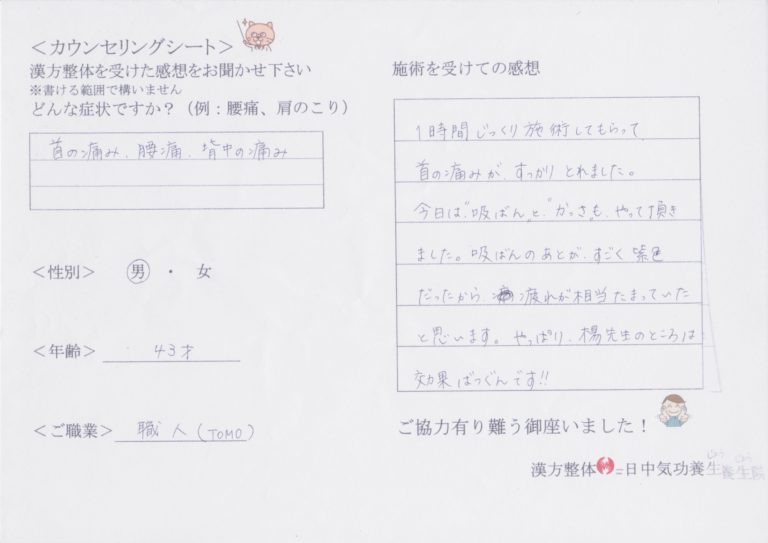 ＜カウンセリングシート＞
漢方整体を受けた感想をお聞かせ下さい
※書ける範囲で構いません
どんな症状ですか？（例：腰痛、肩のこり）
首の痛み、腰痛、背中の痛み
＜性別＞ 男 ・ 女
＜年齢＞ 43才
＜ご職業＞ 職人(TOMO)
施術を受けての感想
1時間じっくり施術してもらって、
首の痛みが、すっかりとれました。
今日は、"吸ばん"と、"かっさ"も、やって頂き
ました。吸ばんのあとが、すごく紫色
だったから、疲れが相当たまっていた
と思います。やっぱり、楊先生のところは
効果ばつぐんです!!
ご協力有り難う御座いました！
漢方整体 =日中気功養生養生院